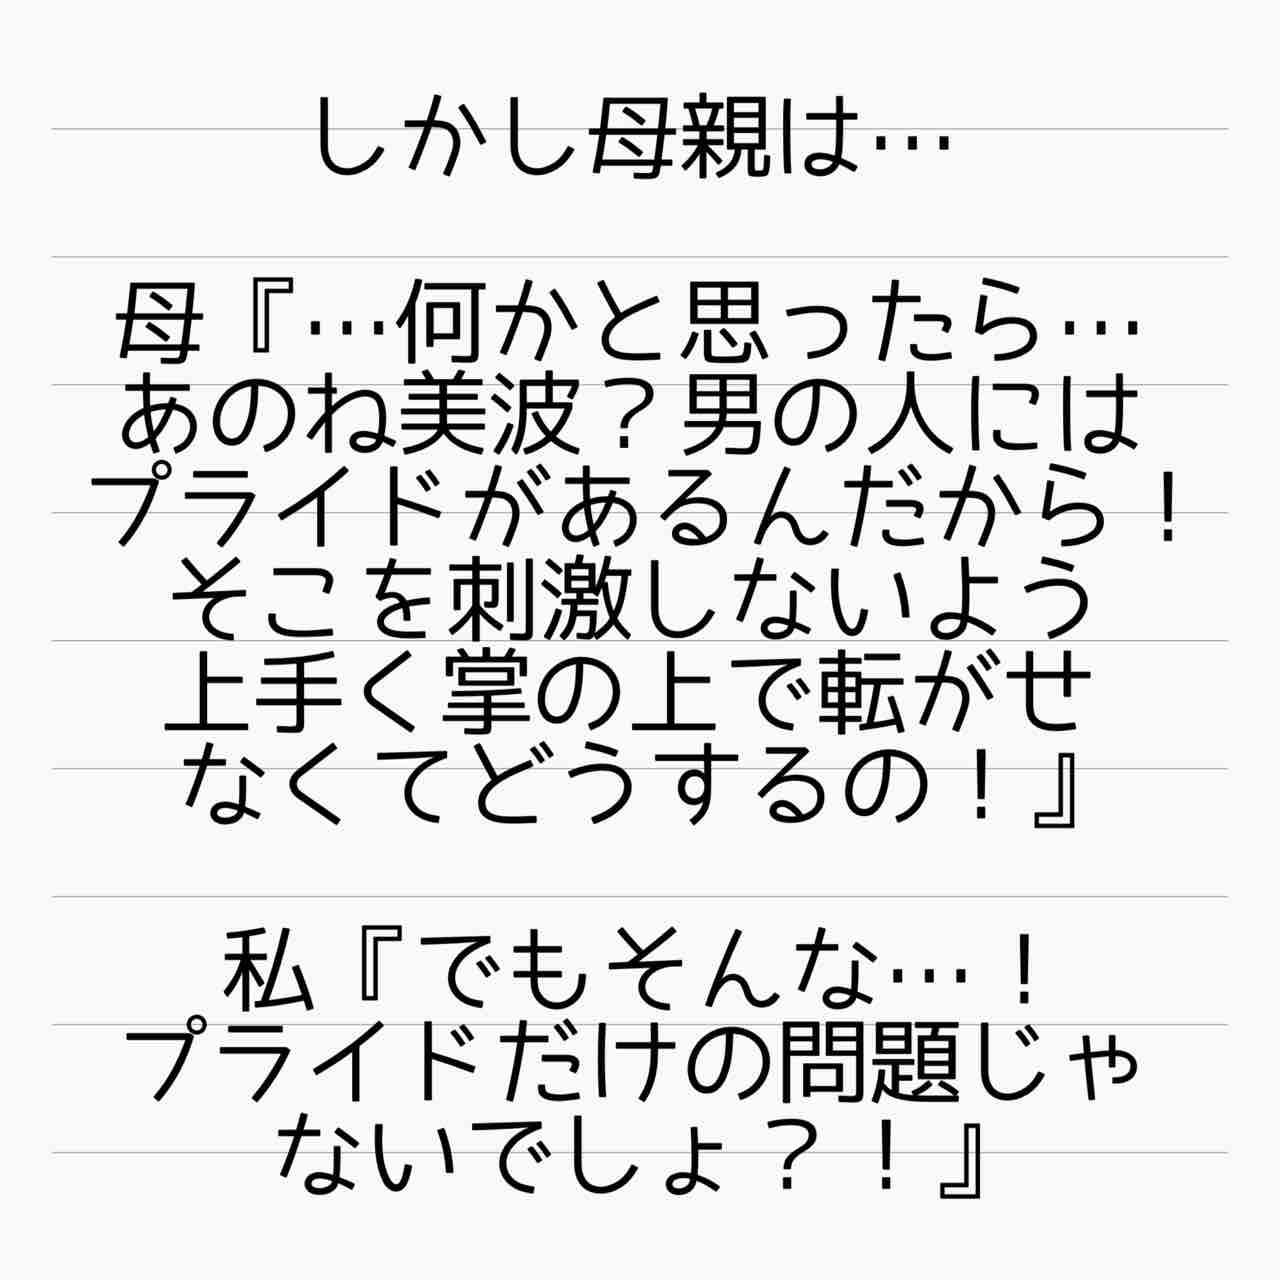 しかし母親は…
母『…何かと思ったら…
あのね美波？男の人には
プライドがあるんだから！
そこを刺激しないよう
上手く掌の上で転がせ
なくてどうするの！』
私『でもそんな…！
プライドだけの問題じゃ
ないでしょ？！』